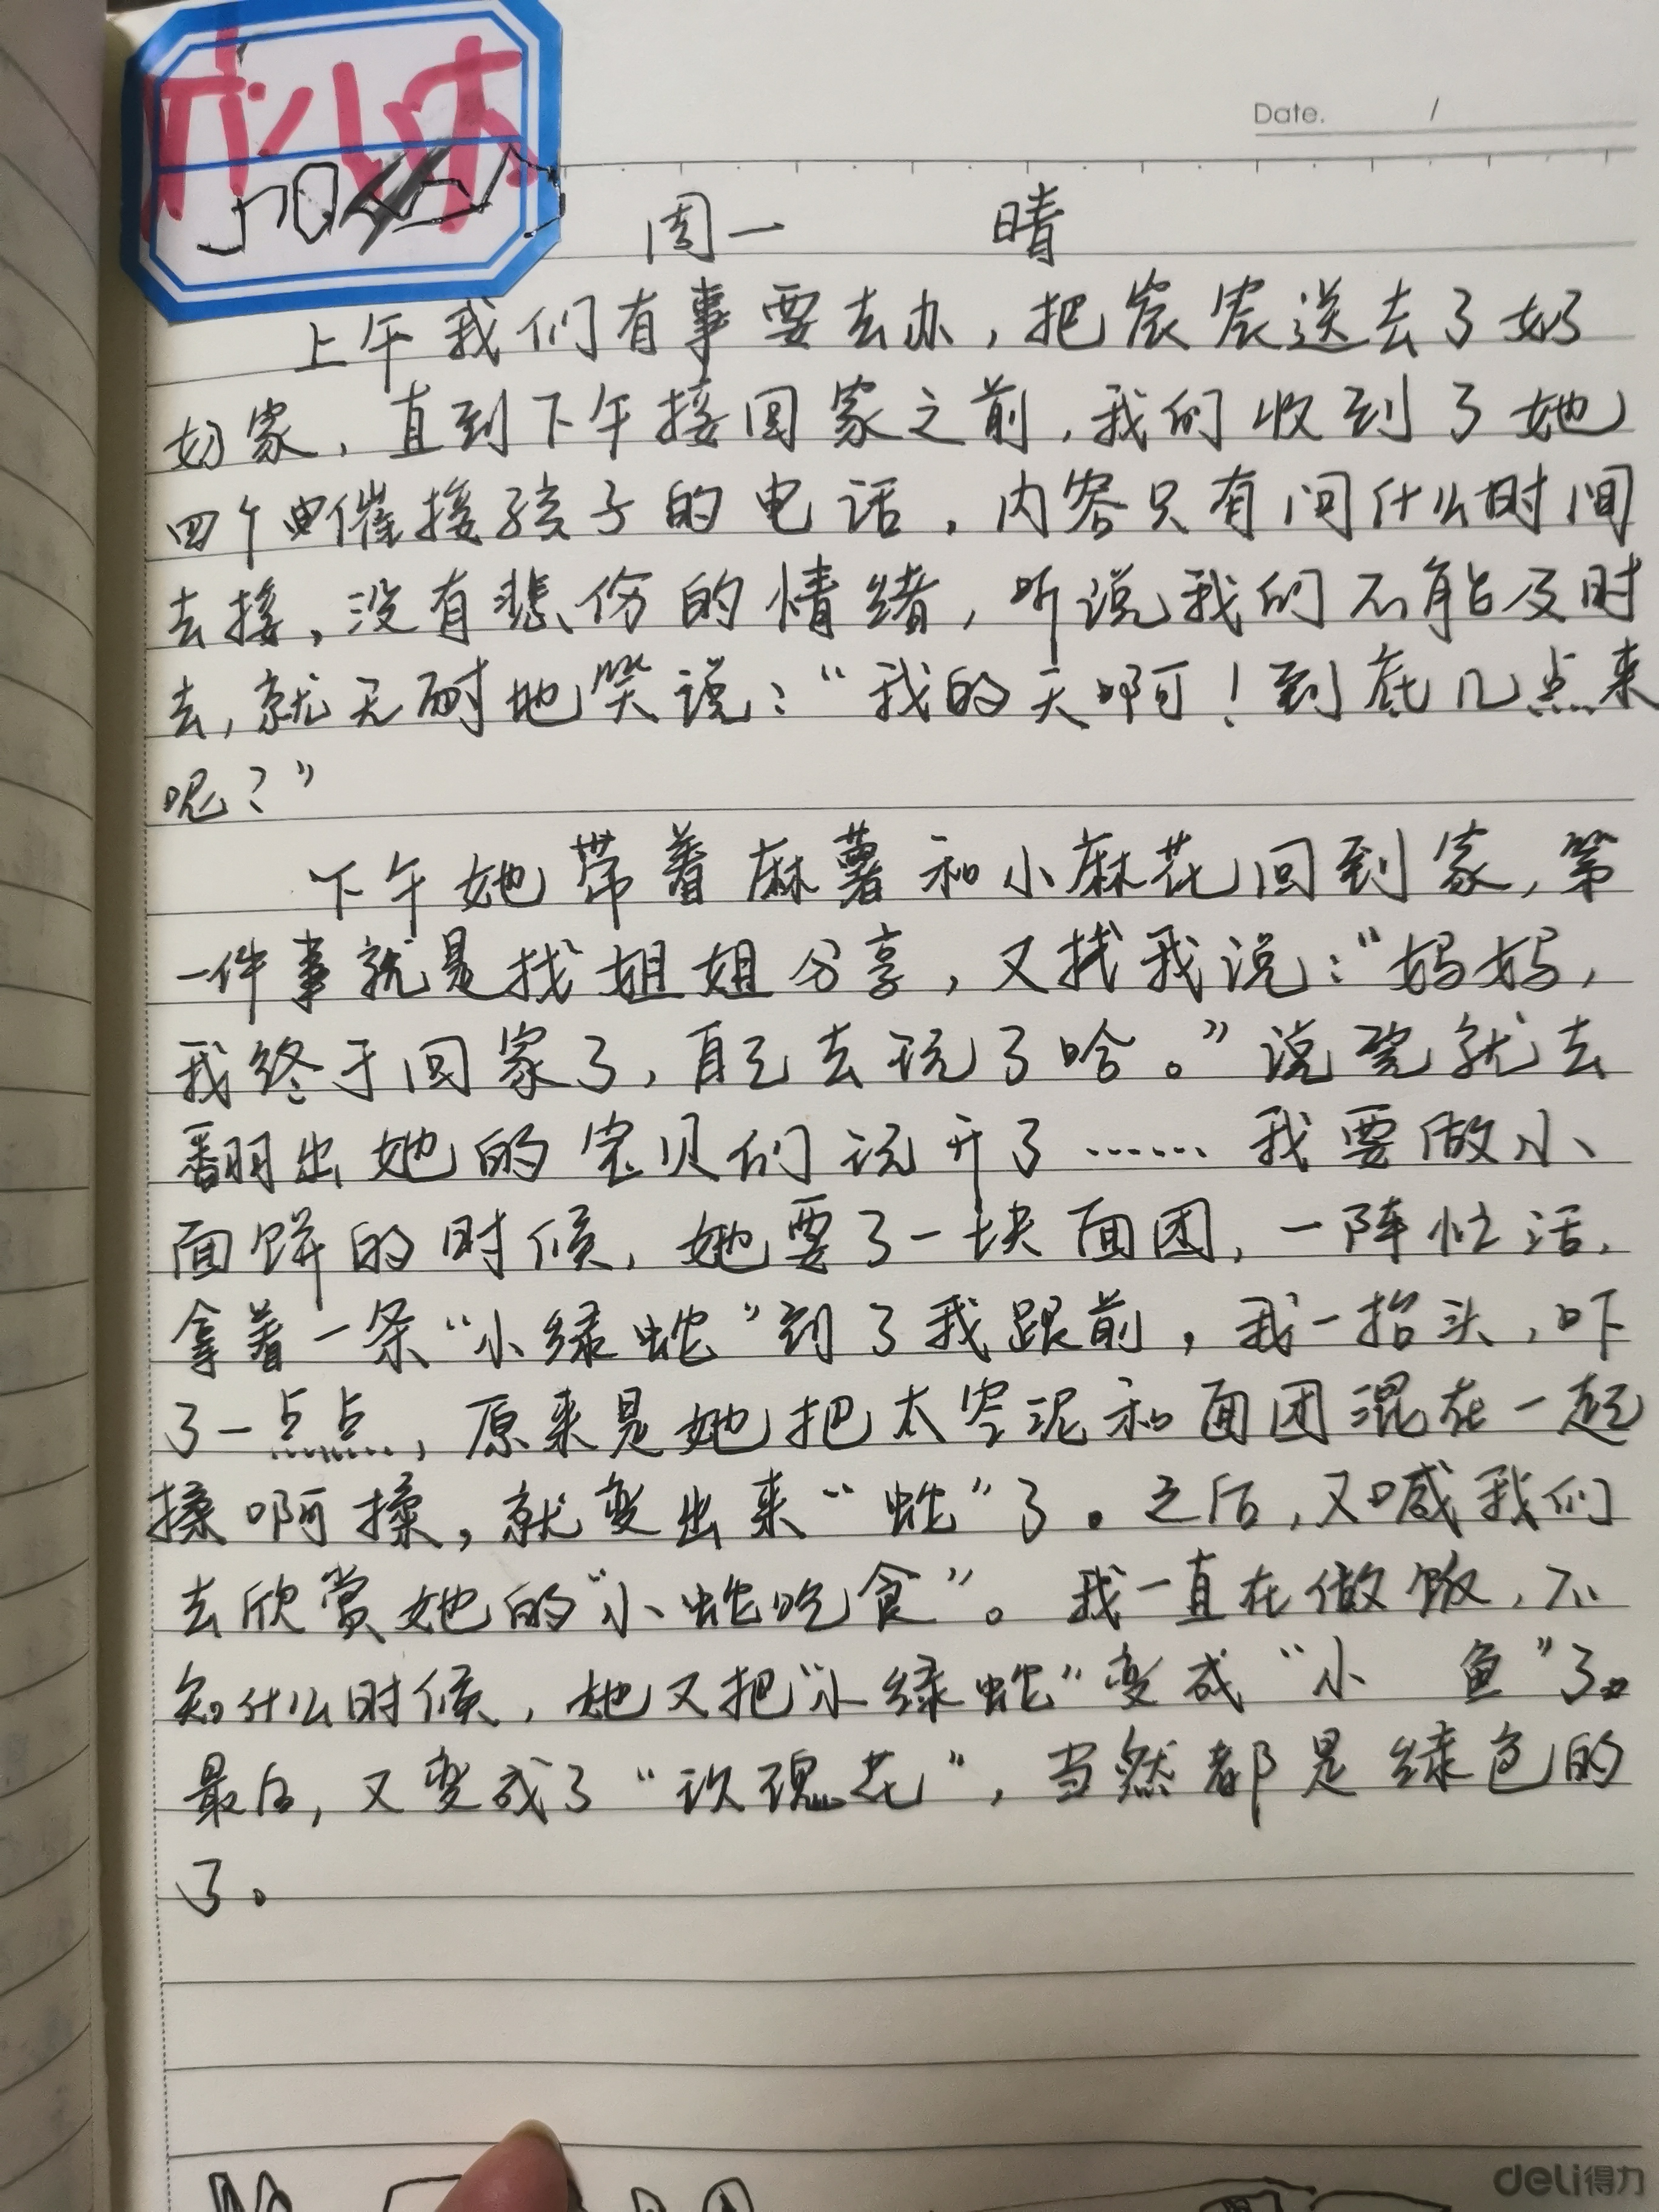 Date. /
周一 晴
上午我们有事要去办,把宸宸送去了奶
奶家,直到下午接回家之前,我们收到了她
四个催接孩子的电话,内容只有问什么时间
去接,没有悲伤的情绪,听说我们不能及时
去,就无耐地笑说:“我的天啊!到底几点来
呢?”
下午她带着麻薯和小麻花回到家,第
一件事就是找姐姐分享,又找我说:“妈妈,
我终于回家了,自己去玩了哈。”说完就去
翻出她的宝贝们玩开了……我要做小
面饼的时候,她要了一块面团,一阵忙活,
拿着一条“小绿蛇”到了我跟前,我一抬头,吓
了一点点,原来是她把太空泥和面团混在一起
揉啊揉,就变出来“蛇”了。之后,又喊我们
去欣赏她的“小蛇吃食”。我一直在做饭,不
知什么时候,她又把“小绿蛇”变成“小 鱼”了。
最后,又变成了“玫瑰花”,当然都是绿色的
了。
deli得力